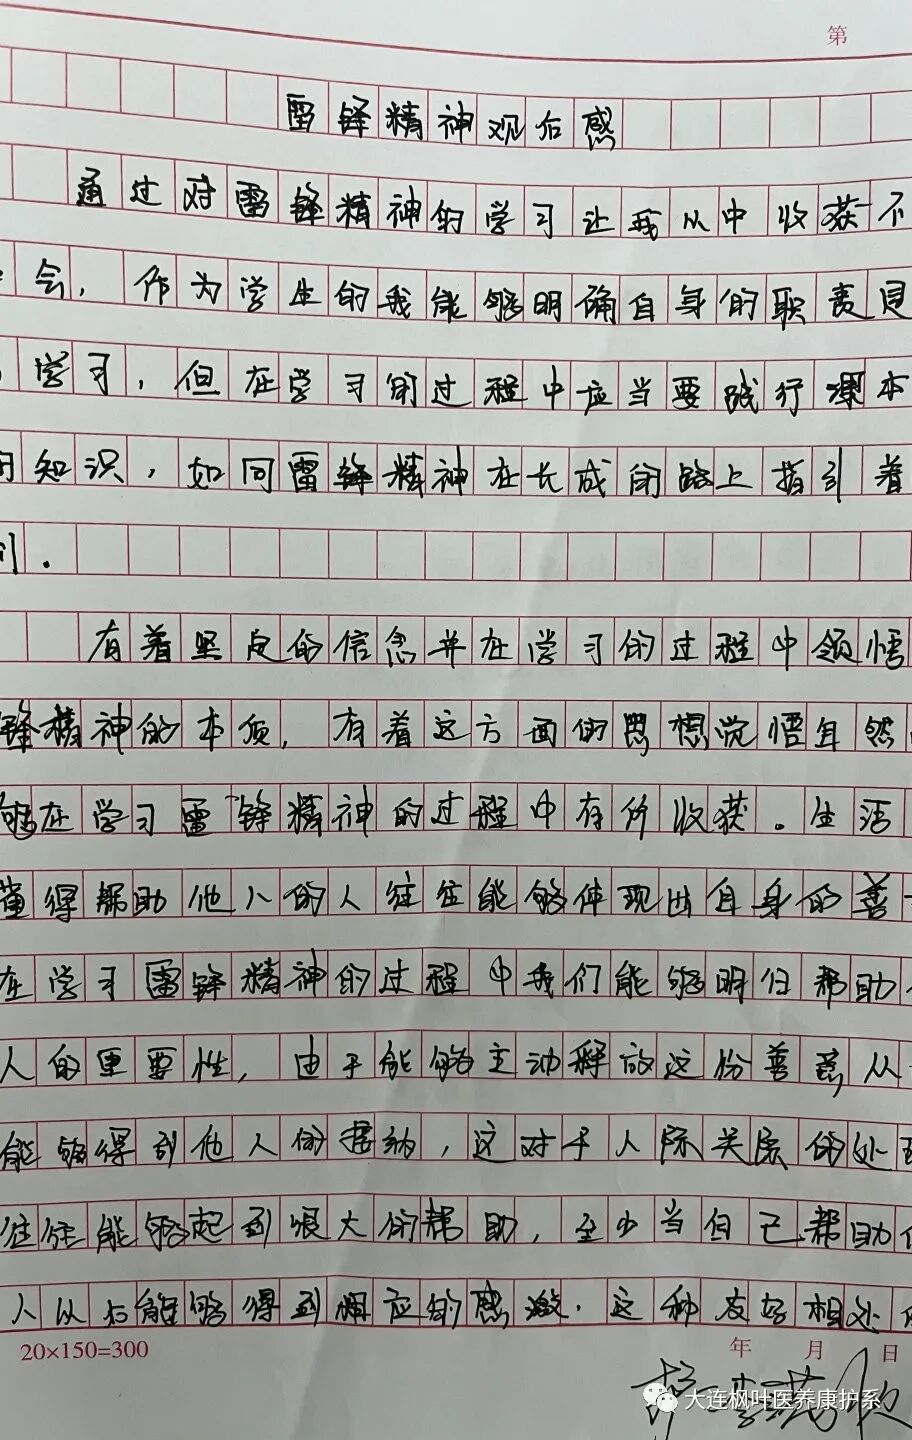 第
雷锋精神观后感
通过对雷锋精神的学习让我从中收获不
会，作为学生的我能够明确自身的职责是
学习，但在学习的过程中应当要践行课本
的知识，如同雷锋精神在长成的路上指引着
们．
有着坚定的信念并在学习的过程中领悟
锋精神的本质，有着这方面的思想觉悟自然
够在学习雷锋精神的过程中有所收获。生活
懂得帮助他人的人往往能够体现出自身的善
在学习雷锋精神的过程中我们能够明白帮助
人的重要性，由于能够主动释放这份善意从
能够得到他人的接纳，这对于人际关系的处理
往往能够起到很大的帮助，至少当自己帮助
人以后能够得到相应的感激．这种友好相处
20×150=300
年 月 日
大连枫叶医养康护系